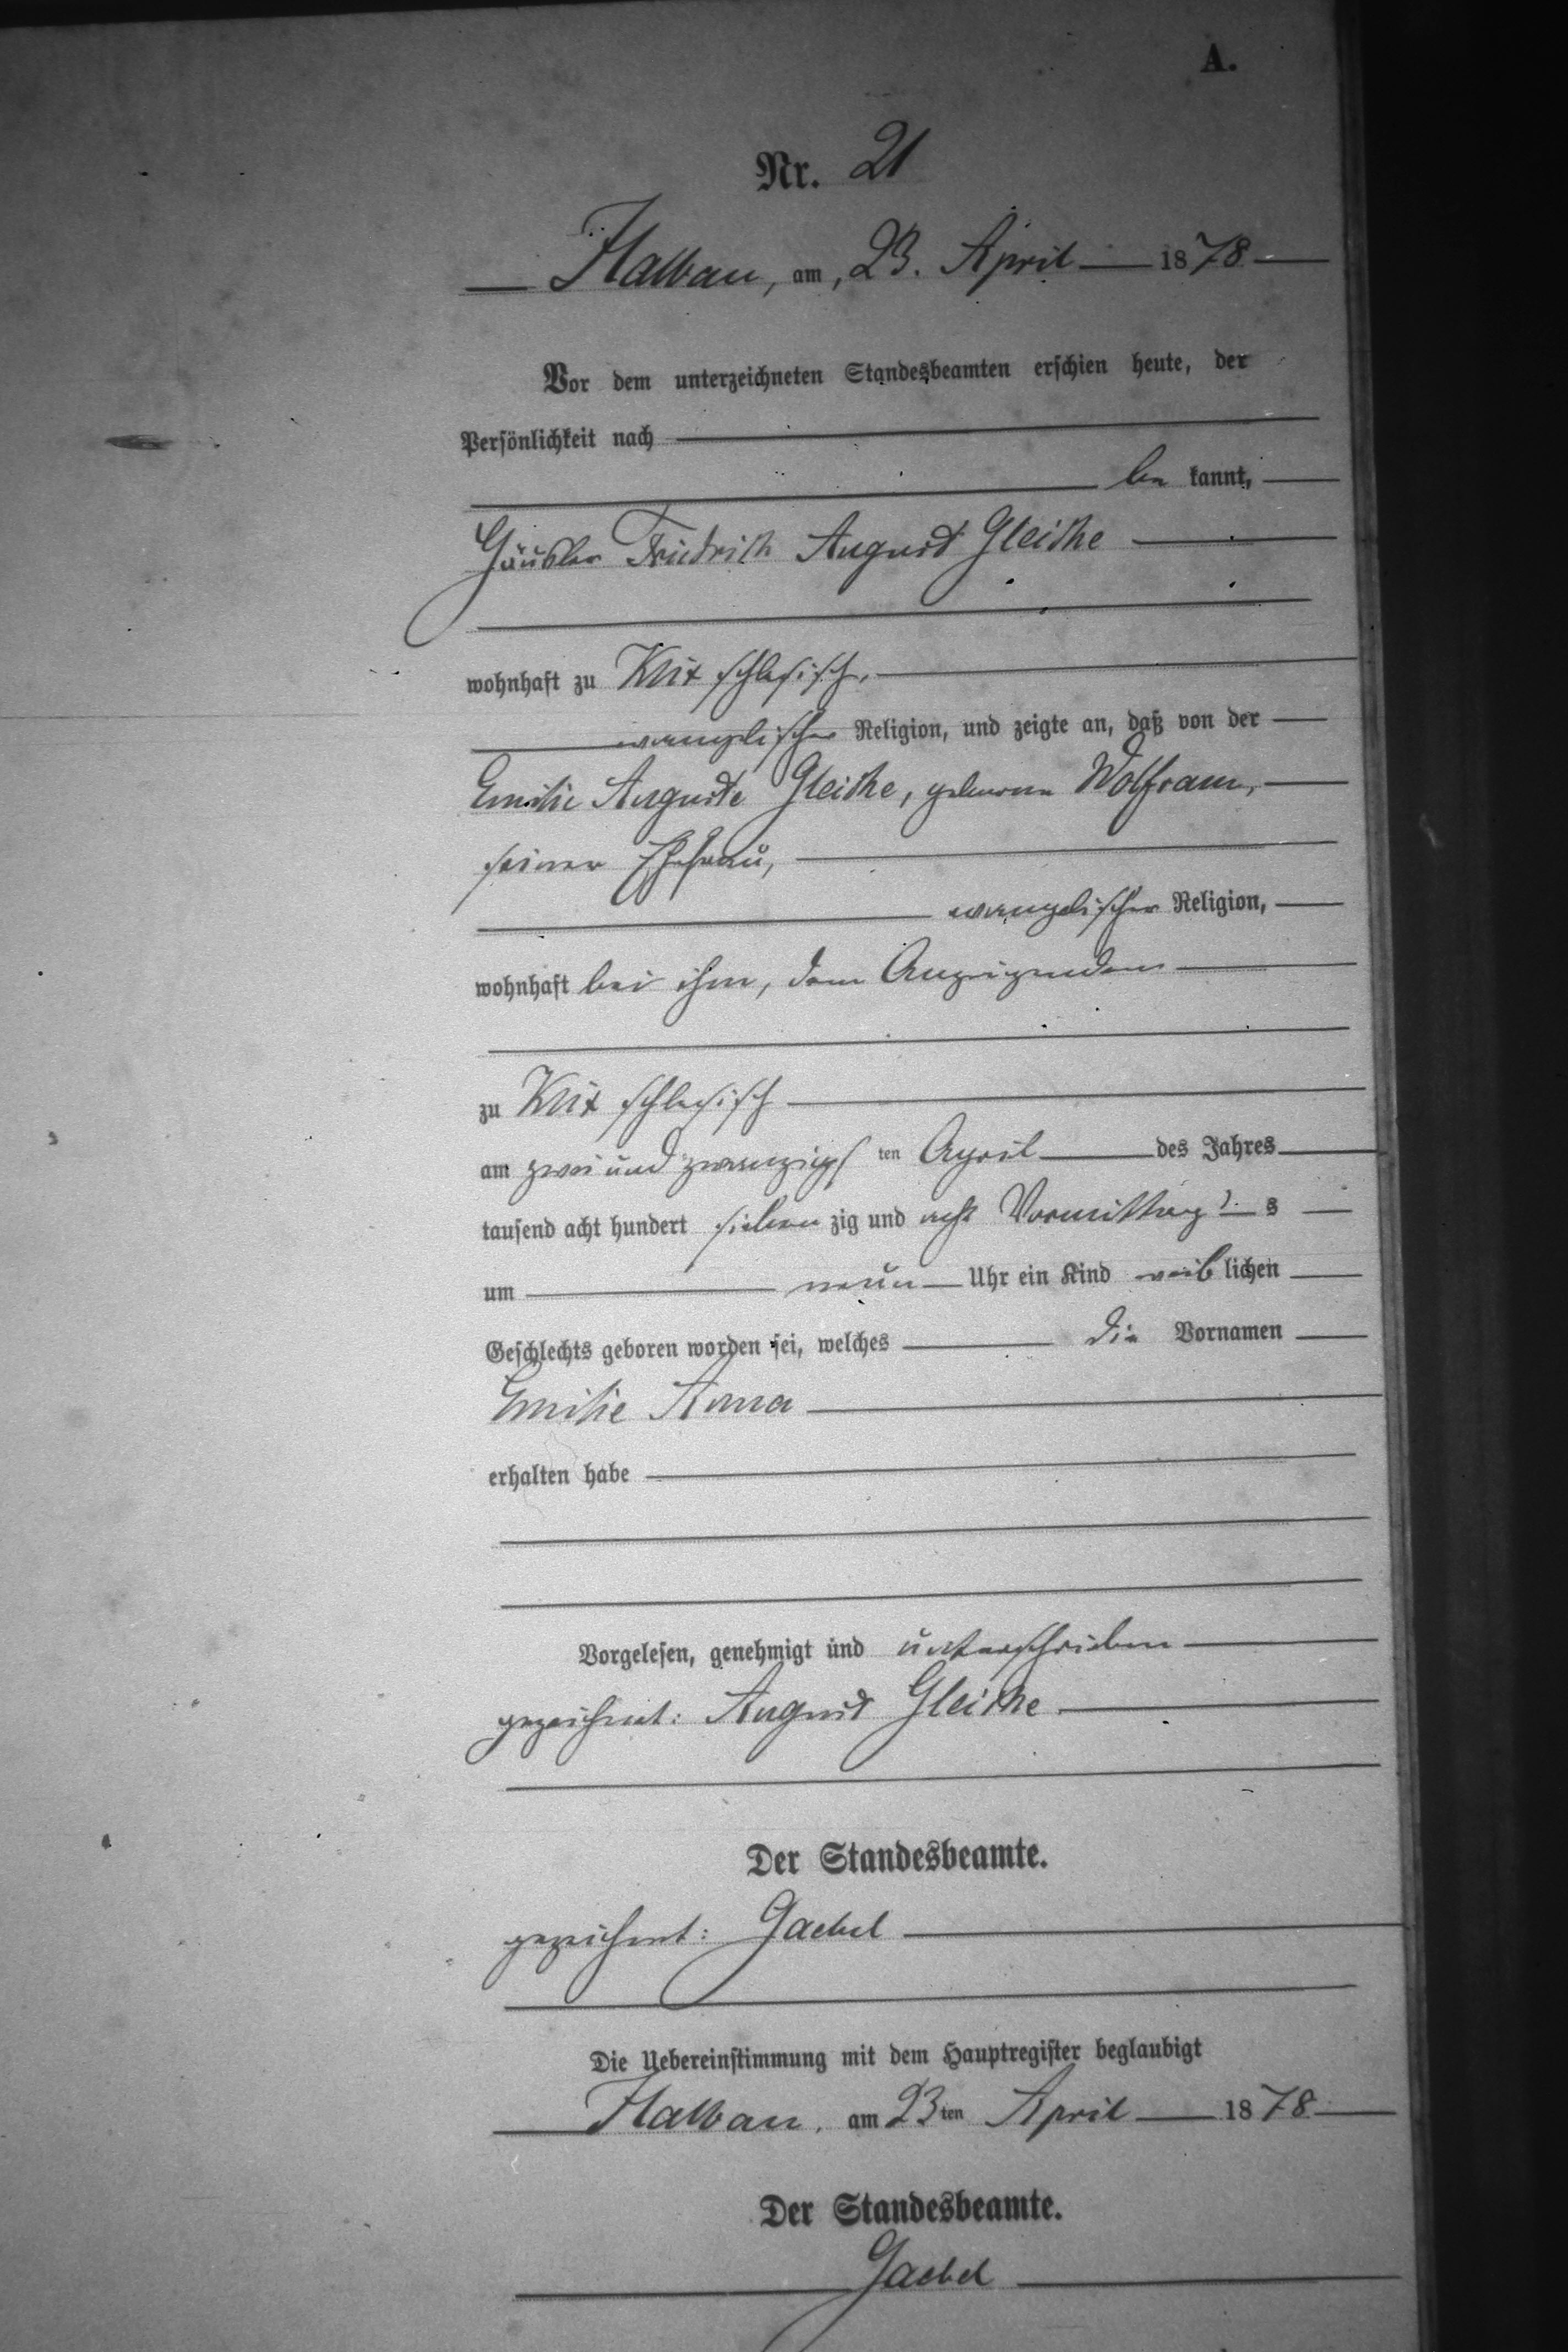 A.
Nr. 21
Halbau, am, 23. April 1878
Vor dem unterzeichneten Standesbeamten erschien heute, der
Persönlichkeit nach
be kannt,
Häusler Friedrich August Gleiche
wohnhaft zu Klix schlesisch,
evangelischer Religion, und zeigte an, daß von der
Emilie Auguste Gleiche, geborene Wolfram,
seiner Ehefrau,
evangelischer Religion,
wohnhaft bei ihm, dem Anzeigenden
zu Klix schlesisch
am zwei und zwanzigs ten April des Jahres
tausend acht hundert sieben zig und acht Vormittags
um neun Uhr ein Kind weib lichen
Geschlechts geboren worden sei, welches die Vornamen
Emilie Anna
erhalten habe
Vorgelesen, genehmigt und unterschrieben
gezeichnet: August Gleiche
Der Standesbeamte.
gezeichnet: Gaebel
Die Uebereinstimmung mit dem Hauptregister beglaubigt
Halbau, am 23ten April 1878
Der Standesbeamte.
Gaebel